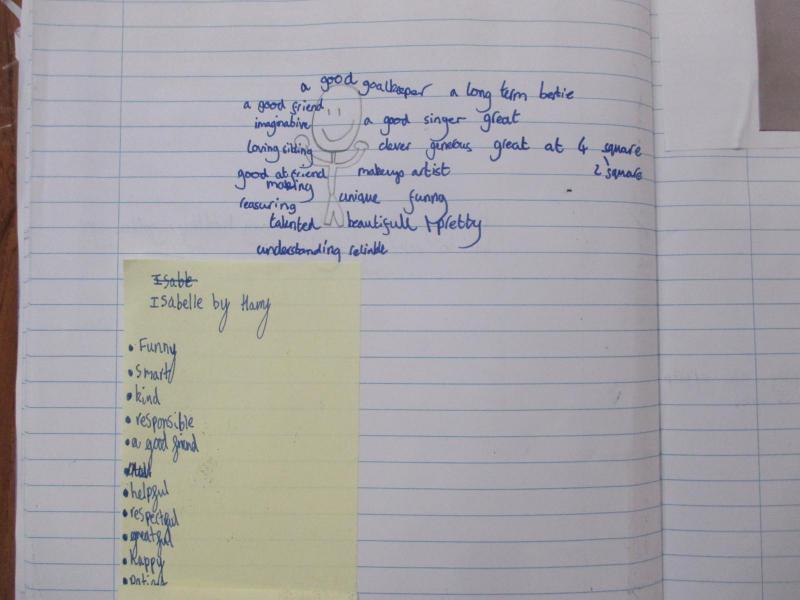 a good goalkeeper a long term bestie
a good friend
imaginative a good singer great
loving sibling clever genebous great at 4 square
good at friend makeup artist 2 square
making unique funny
reasuring
talented beautifull pretty
understanding reliable
Isable
Isabelle by Harry
• Funny
• smart
• kind
• responsible
• a good friend
• helpful
• respectful
• greatful
• happy